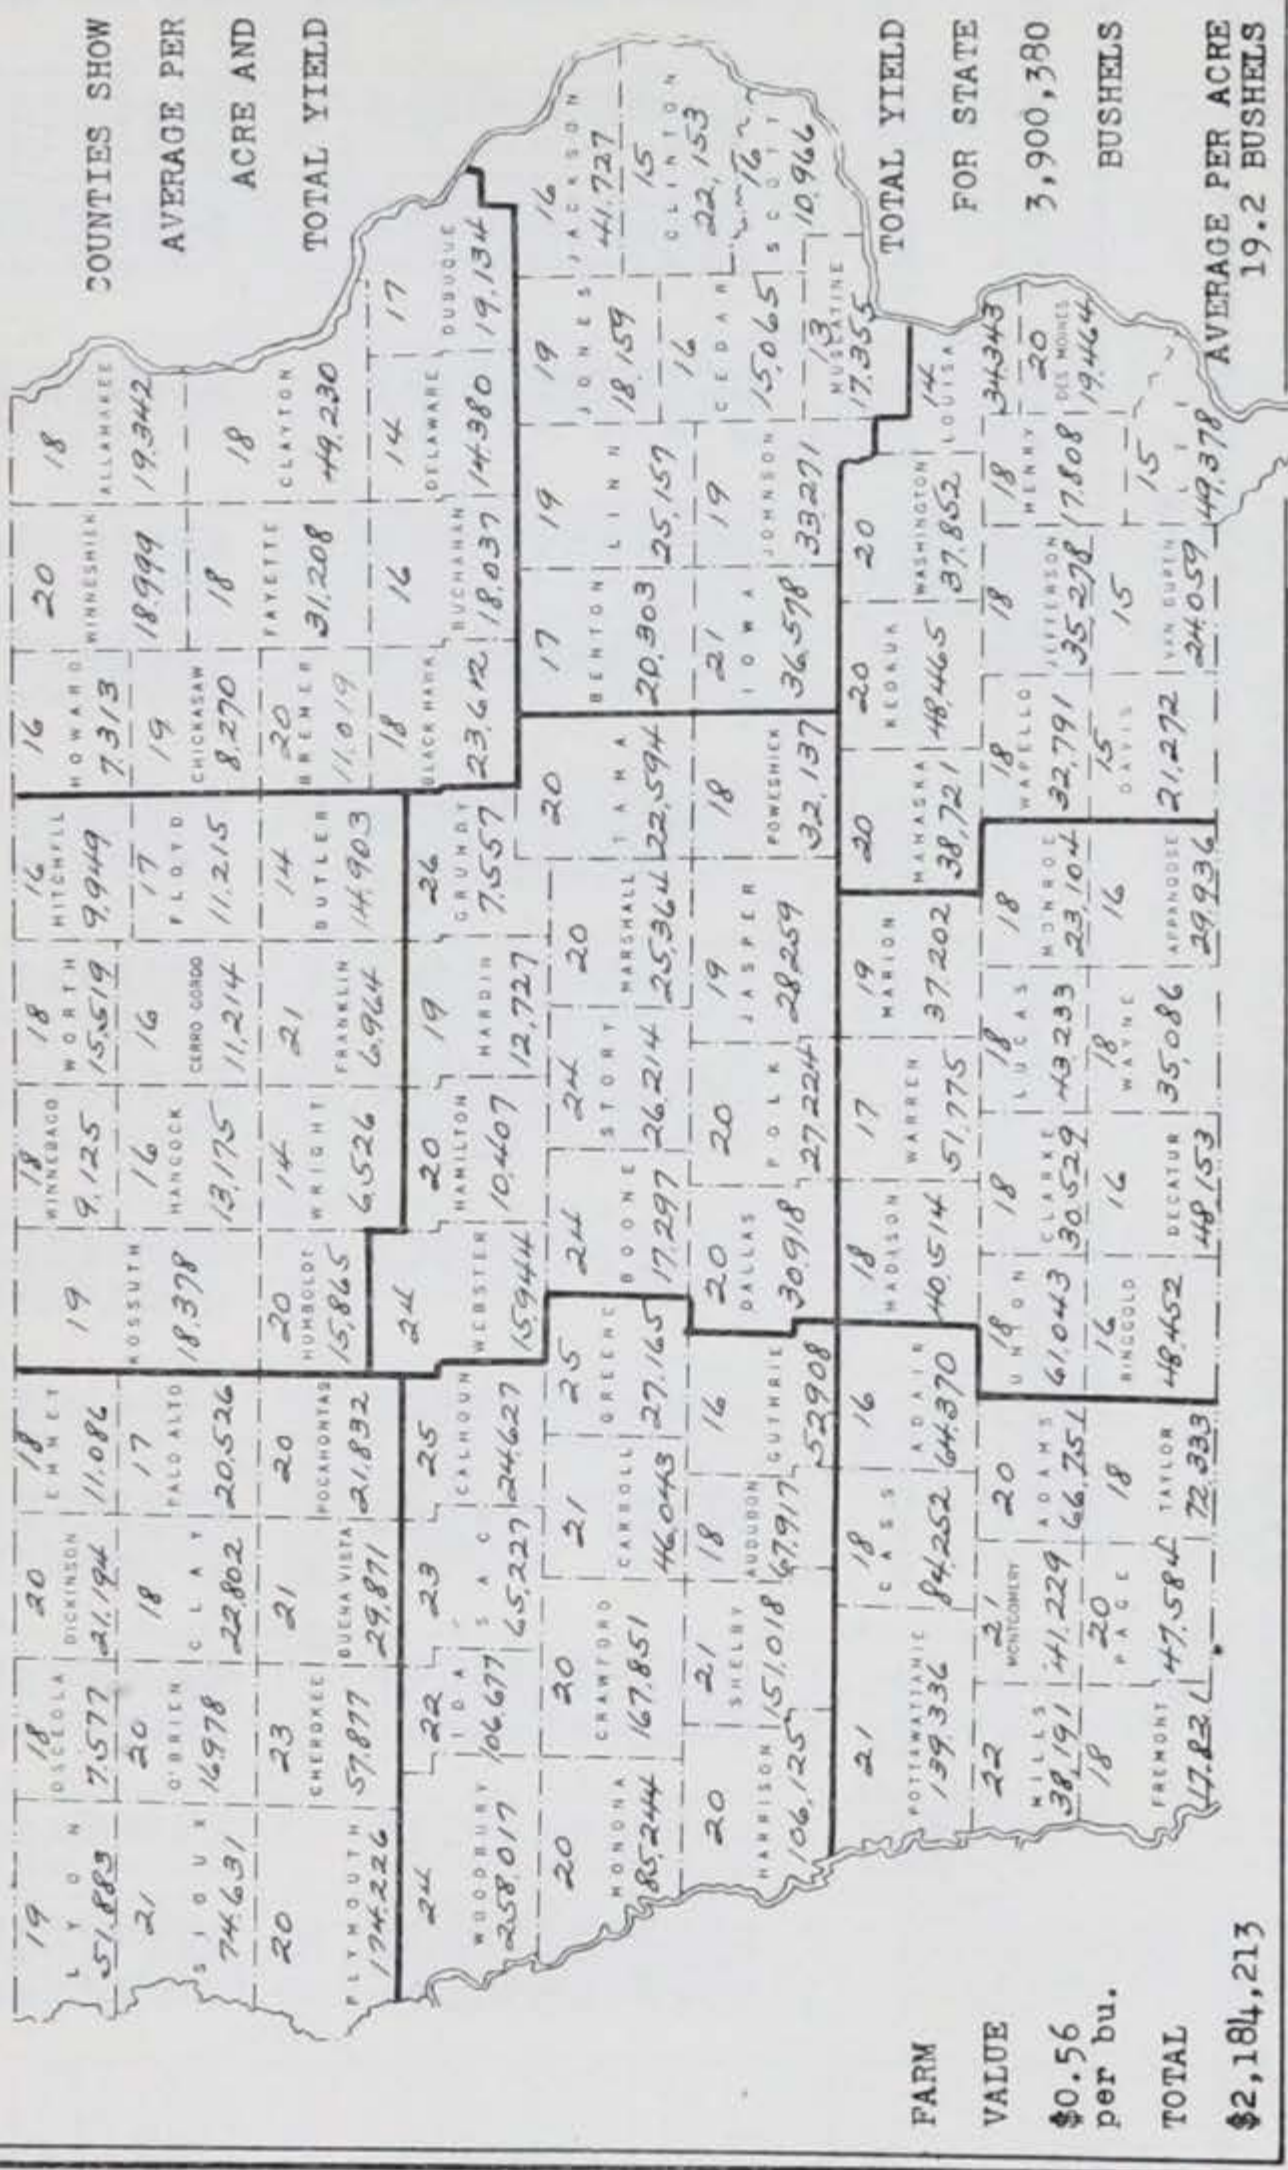 COUNTIES SHOW
AVERAGE PER
ACRE AND
TOTAL YIELD
19
LYON
51,883
18
OSCEOLA
7,577
20
DICKINSON
21,194
18
EMMET
11,086
19
KOSSUTH
18,378
18
WINNEBAGO
9,125
18
WORTH
15,519
16
MITCHELL
9,949
16
HOWARD
7,313
20
WINNESHIEK
18,999
18
ALLAMAKEE
19,342
21
SIOUX
74,631
20
O'BRIEN
16,978
18
CLAY
22,802
17
PALO ALTO
20,526
16
HANCOCK
13,175
16
CERRO GORDO
11,214
17
FLOYD
11,215
19
CHICKASAW
8,270
18
FAYETTE
31,208
18
CLAYTON
49,230
20
PLYMOUTH
174,226
23
CHEROKEE
57,877
21
BUENA VISTA
29,871
20
POCAHONTAS
21,832
20
HUMBOLDT
15,865
14
WRIGHT
6,526
21
FRANKLIN
6,964
14
BUTLER
14,903
20
BREMER
11,019
24
WOODBURY
258,017
22
IDA
106,677
23
SAC
65,227
25
CALHOUN
24,627
24
WEBSTER
15,944
20
HAMILTON
10,407
19
HARDIN
12,727
26
GRUNDY
7,557
18
BLACK HAWK
23,612
16
BUCHANAN
18,037
14
DELAWARE
14,380
17
DUBUQUE
19,134
20
MONONA
85,244
20
CRAWFORD
167,851
21
CARROLL
46,043
25
GREENE
27,165
24
BOONE
17,297
24
STORY
26,214
20
MARSHALL
25,364
20
TAMA
22,594
17
BENTON
20,303
19
LINN
25,157
19
JONES
18,159
16
JACKSON
44,727
15
CLINTON
22,153
20
HARRISON
106,125
21
SHELBY
151,018
18
AUDUBON
67,917
16
GUTHRIE
52,908
20
DALLAS
30,918
20
POLK
27,224
19
JASPER
28,259
18
POWESHIEK
32,137
21
IOWA
36,578
19
JOHNSON
33,271
16
CEDAR
15,065
16
SCOTT
10,966
13
MUSCATINE
17,355
21
POTTAWATTAMIE
139,336
18
CASS
84,252
16
ADAIR
64,370
18
MADISON
40,514
17
WARREN
51,775
19
MARION
37,202
20
MAHASKA
38,721
20
KEOKUK
48,465
20
WASHINGTON
37,852
14
LOUISA
34,343
22
MILLS
38,191
21
MONTGOMERY
41,229
20
ADAMS
66,751
18
UNION
61,043
18
CLARKE
30,529
18
LUCAS
43,233
18
MONROE
23,104
18
WAPELLO
32,791
18
JEFFERSON
35,278
18
HENRY
17,808
20
DES MOINES
19,464
18
FREMONT
17,821
20
PAGE
47,584
18
TAYLOR
72,333
16
RINGGOLD
48,452
16
DECATUR
48,153
18
WAYNE
35,086
16
APPANOOSE
29,936
15
DAVIS
21,272
15
VAN BUREN
24,059
15
LEE
49,378
TOTAL YIELD
FOR STATE
3,900,380
BUSHELS
AVERAGE PER ACRE
19.2 BUSHELS
FARM
VALUE
$0.56
per bu.
TOTAL
$2,184,213